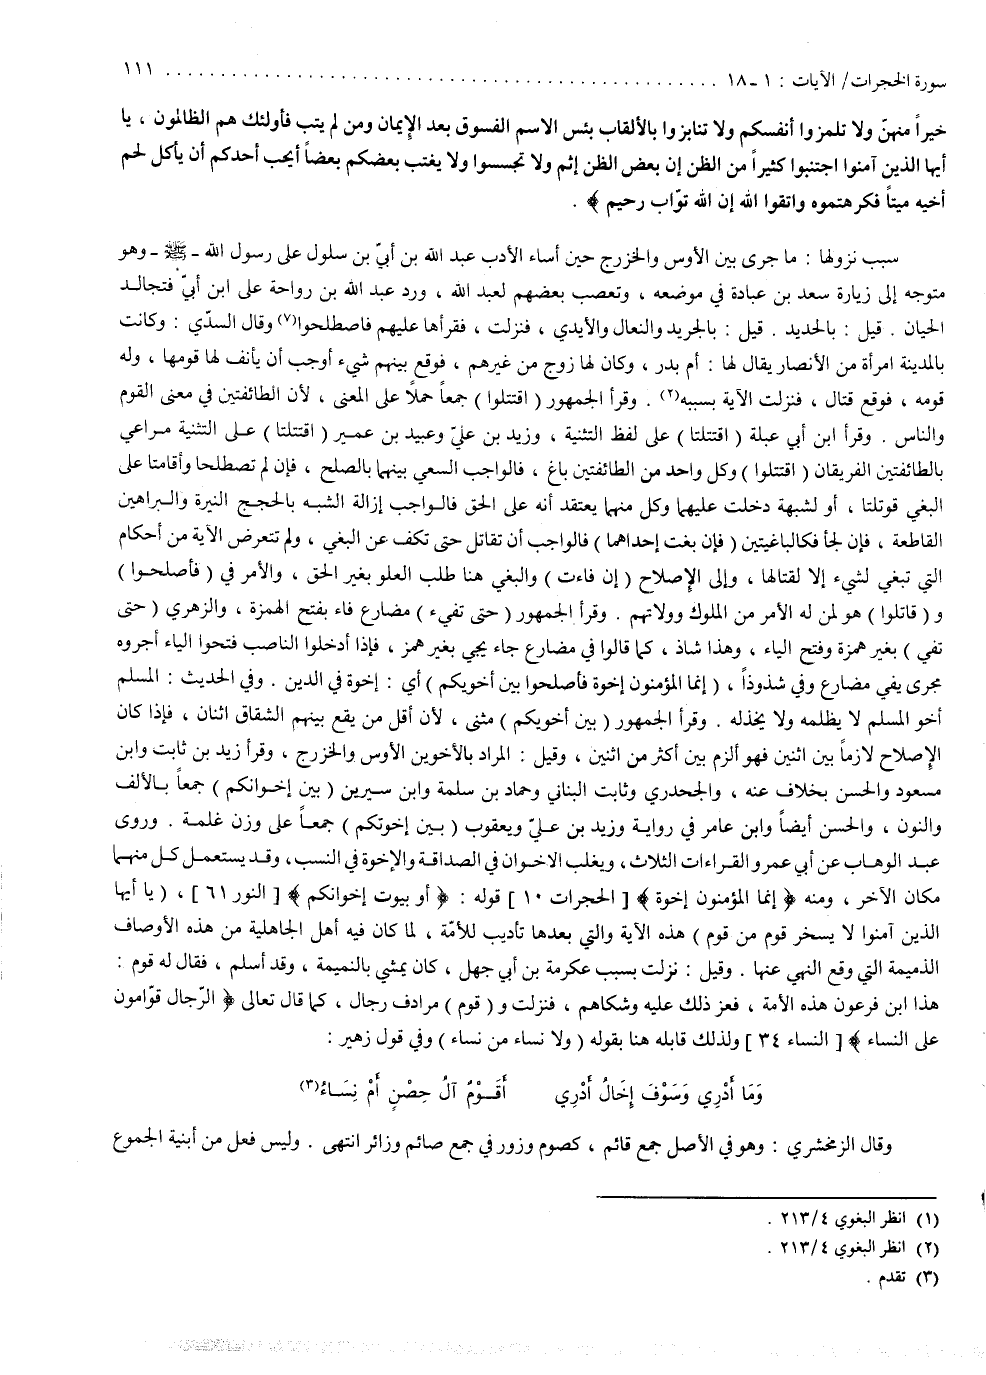 سورة الحجرات/ الآيات : ١ ـ ١٨ . . . . . . . . . . . . . . . . . . . . . . . . . . . . . . . . . . . . . . . . . . . . . . . ١١١
خيراً منهنّ ولا تلمزوا أنفسكم ولا تنابزوا بالألقاب بئس الاسم الفسوق بعد الإيمان ومن لم يتب فأولئك هم الظالمون ، يا
أيها الذين آمنوا اجتنبوا كثيراً من الظن إن بعض الظن إثم ولا تجسسوا ولا يغتب بعضكم بعضاً أيحب أحدكم أن يأكل لحم
أخيه ميتاً فكرهتموه واتقوا الله إن الله توّاب رحيم ﴾ .
سبب نزولها : ما جرى بين الأوس والخزرج حين أساء الأدب عبد الله بن أبيّ بن سلول على رسول الله ـ ﷺ ـ وهو
متوجه إلى زيارة سعد بن عبادة في موضعه ، وتعصب بعضهم لعبد الله ، ورد عبد الله بن رواحة على ابن أبيّ فتجالد
الحيان . قيل : بالحديد . قيل : بالجريد والنعال والأيدي ، فنزلت ، فقرأها عليهم فاصطلحوا(٧) وقال السدّي : وكانت
بالمدينة امرأة من الأنصار يقال لها : أم بدر ، وكان لها زوج من غيرهم ، فوقع بينهم شيء أوجب أن يأنف لها قومها ، وله
قومه ، فوقع قتال ، فنزلت الآية بسببه(٢) . وقرأ الجمهور ( اقتتلوا ) جمعاً حملاً على المعنى ، لأن الطائفتين في معنى القوم
والناس . وقرأ ابن أبي عبلة ( اقتتلتا ) على لفظ التثنية ، وزيد بن عليّ وعبيد بن عمير ( اقتتلتا ) على التثنية مراعي
بالطائفتين الفريقان ( اقتتلوا ) وكل واحد من الطائفتين باغ ، فالواجب السعي بينهما بالصلح ، فإن لم تصطلحا وأقامتا على
البغي قوتلتا ، أو لشبهة دخلت عليهما وكل منهما يعتقد أنه على الحق فالواجب إزالة الشبه بالحجج النيرة والبراهين
القاطعة ، فإن لجأ فكالباغيتين ( فإن بغت إحداهما ) فالواجب أن تقاتل حتى تكف عن البغي ، ولم تتعرض الآية من أحكام
التي تبغي لشيء إلا لقتالها ، وإلى الإصلاح ( إن فاءت ) والبغي هنا طلب العلو بغير الحق ، والأمر في ( فأصلحوا )
و ( قاتلوا ) هو لمن له الأمر من الملوك وولاتهم . وقرأ الجمهور ( حتى تفيء ) مضارع فاء بفتح الهمزة ، والزهري ( حتى
تفي ) بغير همزة وفتح الياء ، وهذا شاذ ، كما قالوا في مضارع جاء يجي بغير همز ، فإذا أدخلوا الناصب فتحوا الياء أجروه
مجرى يفي مضارع وفي شذوذاً ، ( إنما المؤمنون إخوة فأصلحوا بين أخويكم ) أي : إخوة في الدين . وفي الحديث : المسلم
أخو المسلم لا يظلمه ولا يخذله . وقرأ الجمهور ( بين أخويكم ) مثنى ، لأن أقل من يقع بينهم الشقاق اثنان ، فإذا كان
الإصلاح لازماً بين اثنين فهو ألزم بين أكثر من اثنين ، وقيل : المراد بالأخوين الأوس والخزرج ، وقرأ زيد بن ثابت وابن
مسعود والحسن بخلاف عنه ، والجحدري وثابت البناني وحماد بن سلمة وابن سيرين ( بين إخوانكم ) جمعاً بالألف
والنون ، والحسن أيضاً وابن عامر في رواية وزيد بن عليّ ويعقوب ( بين إخوتكم ) جمعاً على وزن غلمة . وروى
عبد الوهاب عن أبي عمرو القراءات الثلاث ، ويغلب الاخوان في الصداقة والإخوة في النسب ، وقد يستعمل كل منهما
مكان الآخر ، ومنه ﴿ إنما المؤمنون إخوة ﴾ [ الحجرات ١٠ ] قوله : ﴿ أو بيوت إخوانكم ﴾ [ النور ٦١ ] ، ( يا أيها
الذين آمنوا لا يسخر قوم من قوم ) هذه الآية والتي بعدها تأديب للأمّة ، لما كان فيه أهل الجاهلية من هذه الأوصاف
الذميمة التي وقع النهي عنها . وقيل : نزلت بسبب عكرمة بن أبي جهل ، كان يمشي بالنميمة ، وقد أسلم ، فقال له قوم :
هذا ابن فرعون هذه الأمة ، فعز ذلك عليه وشكاهم ، فنزلت و ( قوم ) مرادف رجال ، كما قال تعالى ﴿ الرّجال قوّامون
على النساء ﴾ [ النساء ٣٤ ] ولذلك قابله هنا بقوله ( ولا نساء من نساء ) وفي قول زهير :
وَمَا أَدْرِي وَسَوْفَ إِخَالُ أَدْرِي أَقَوْمٌ آلُ حِصْنٍ أَمْ نِسَاءُ(٣)
وقال الزمخشري : وهو في الأصل جمع قائم ، كصوم وزور في جمع صائم وزائر انتهى . وليس فعل من أبنية الجموع
(١) انظر البغوي ٢١٣/٤ .
(٢) انظر البغوي ٢١٣/٤ .
(٣) تقدم .